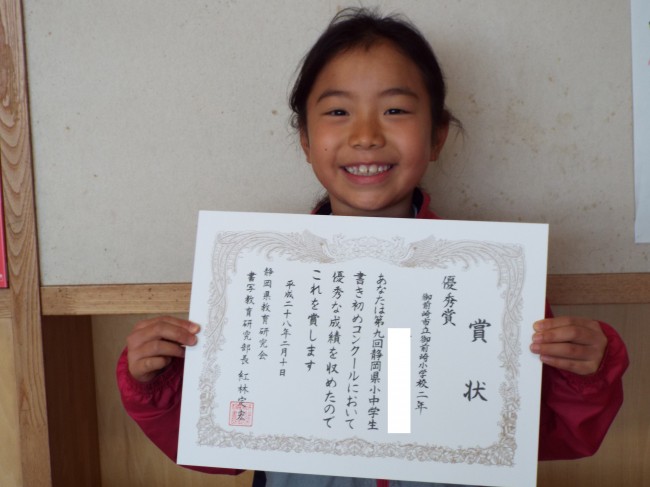 賞状
優秀賞
御前崎市立御前崎小学校二年
あなたは第九回静岡県小中学生
書き初めコンクールにおいて
優秀な成績を収めたので
これを賞します
平成二十八年二月十日
静岡県教育研究会
書写教育研究部長 紅林